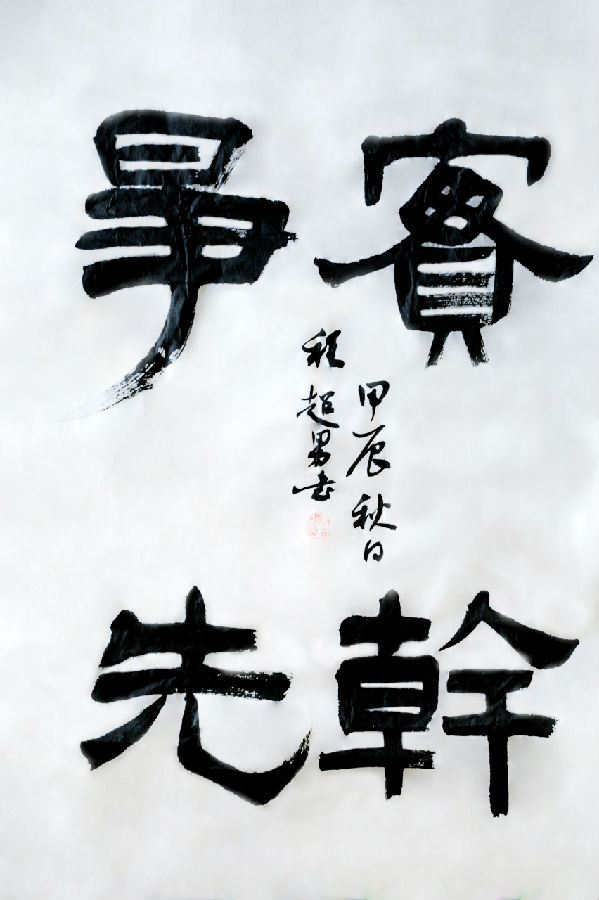 實幹
爭先
甲辰秋日
程超男書